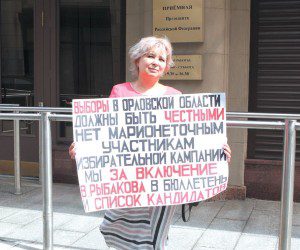 ПРИЁМНАЯ
Президента
Российской Федерации
ВЫБОРЫ В ОРЛОВСКОЙ ОБЛАСТИ
ДОЛЖНЫ БЫТЬ ЧЕСТНЫМИ
НЕТ МАРИОНЕТОЧНЫМ
УЧАСТНИКАМ
ИЗБИРАТЕЛЬНОЙ КАМПАНИИ
МЫ ЗА ВКЛЮЧЕНИЕ
В РЫБАКОВА В БЮЛЛЕТЕНЬ
И СПИСОК КАНДИДАТОВ